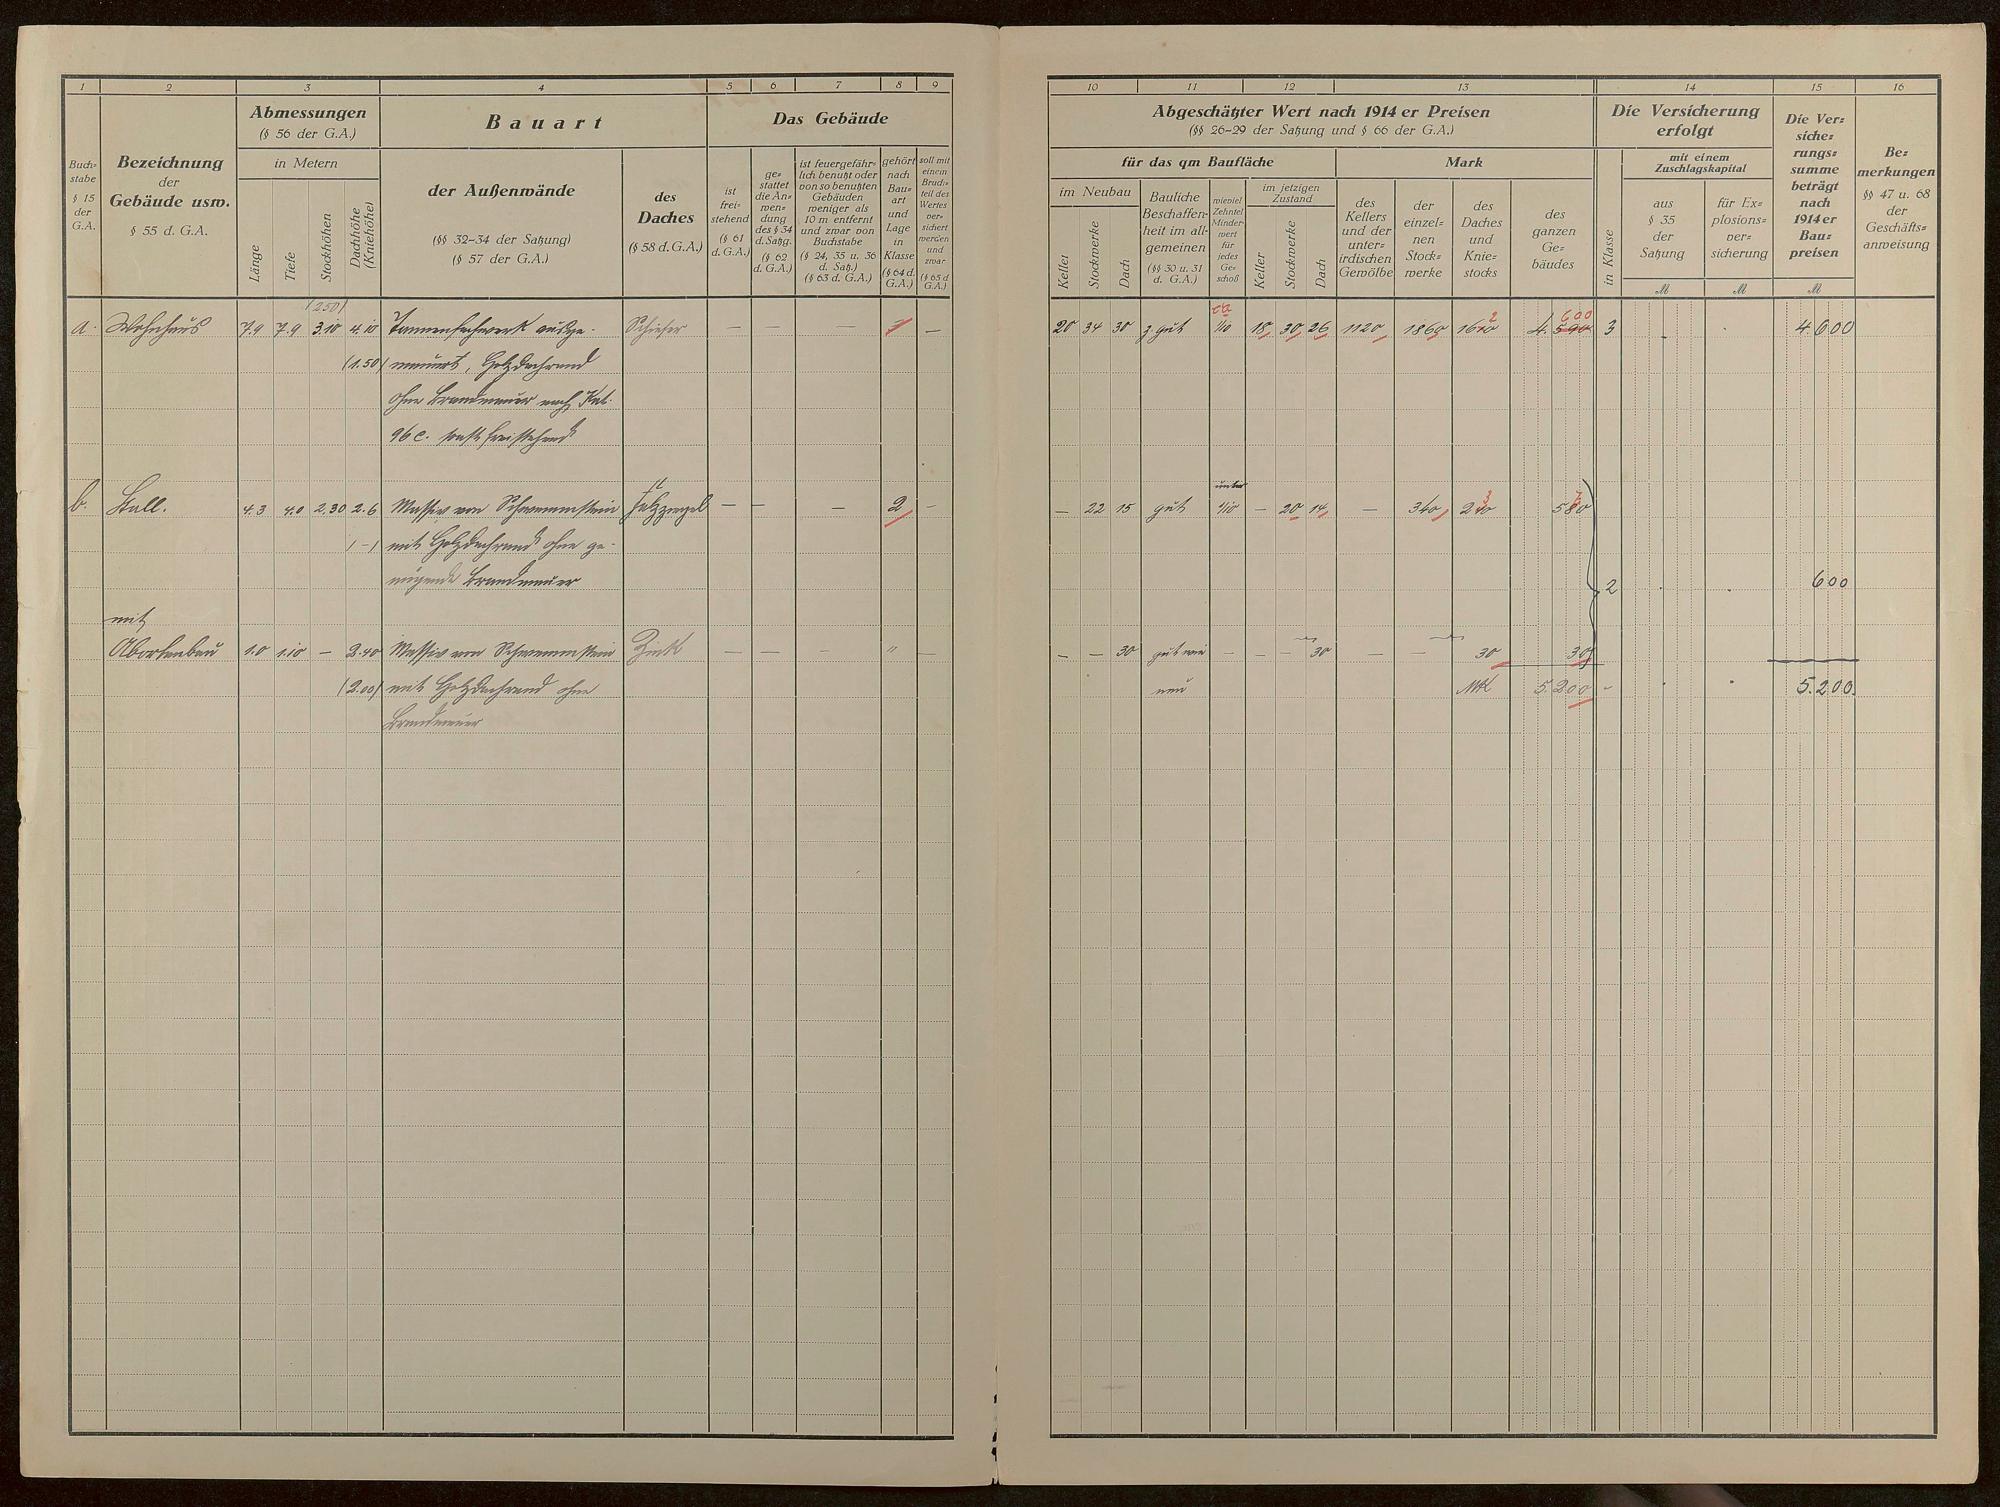 1 2 3 4 5 6 7 8 9
Buch-
stabe
§ 15
der
G.A.
Bezeichnung
der
Gebäude usw.
§ 55 d. G.A.
Abmessungen
(§ 56 der G.A.)
in Metern
Länge
Tiefe
Stockhöhen
Dachhöhe
(Kniehöhe)
Bauart
der Außenwände
(§§ 32-34 der Satzung)
(§ 57 der G.A.)
des
Daches
(§ 58 d. G.A.)
Das Gebäude
ist
frei-
stehend
(§ 61
d. G.A.)
ge-
stattet
die An-
wen-
dung
des § 34
d. Satzg.
(§ 62
d. G.A.)
ist feuergefähr-
lich benutzt oder
von so benutzten
Gebäuden
weniger als
10 m entfernt
und zwar von
Buchstabe
(§ 24, 35 u. 36
d. Satz.)
(§ 63 d. G.A.)
gehört
nach
Bau-
art
und
Lage
in
Klasse
(§ 64 d.
G.A.)
soll mit
einem
Bruch-
teil des
Wertes
ver-
sichert
werden
und
zwar
(§ 65 d
G.A.)
(250)
a. Wohnhaus 7.9 7.9 3.10 4.10 Tannenfachwerk ausge- Schiefer — — — — 
(1.50) mauert, Holzdachrand
ohne Brandmauer nach Kat.
96 c. sonst freistehend
b. Stall. 4.3 4.0 2.30 2.6 Massiv von Schwemmstein Falzziegel — — — 2 -
(-) mit Holzdachrand ohne ge-
nügende Brandmauer
mit
Abortanbau 1.0 1.10 — 2.40 Massiv von Schwemmstein Zink — — — " —
(2.00) mit Holzdachrand ohne
Brandmauer
10 11 12 13 14 15 16
Abgeschätzter Wert nach 1914 er Preisen
(§§ 26-29 der Satzung und § 66 der G.A.)
für das qm Baufläche
Mark
im Neubau
Keller
Stockwerke
Dach
Bauliche
Beschaffen-
heit im all-
gemeinen
(§§ 30 u. 31
d. G.A.)
wieviel
Zehntel
Minder-
wert
für
jedes
Ge-
schoß
im jetzigen
Zustand
Keller
Stockwerke
Dach
des
Kellers
und der
unter-
irdischen
Gewölbe
der
einzel-
nen
Stock-
werke
des
Daches
und
Knie-
stocks
des
ganzen
Ge-
bäudes
Die Versicherung
erfolgt
in Klasse
mit einem
Zuschlagskapital
aus
§ 35
der
Satzung
für Ex-
plosions-
ver-
sicherung
Die Ver-
siche-
rungs-
summe
beträgt
nach
1914 er
Bau-
preisen
Be-
merkungen
§§ 47 u. 68
der
Geschäfts-
anweisung
M M M
ca 2 600
20 34 30 z. gut 1/10 18 30 26 1120 1860 1610 4.590 3 4.600
unter
— 22 15 gut 1/10 — 20 14 — 340 580
2 600
— — 30 gut wie — — 30 — — 30 30
neu Mk 5.200 - 5.200.